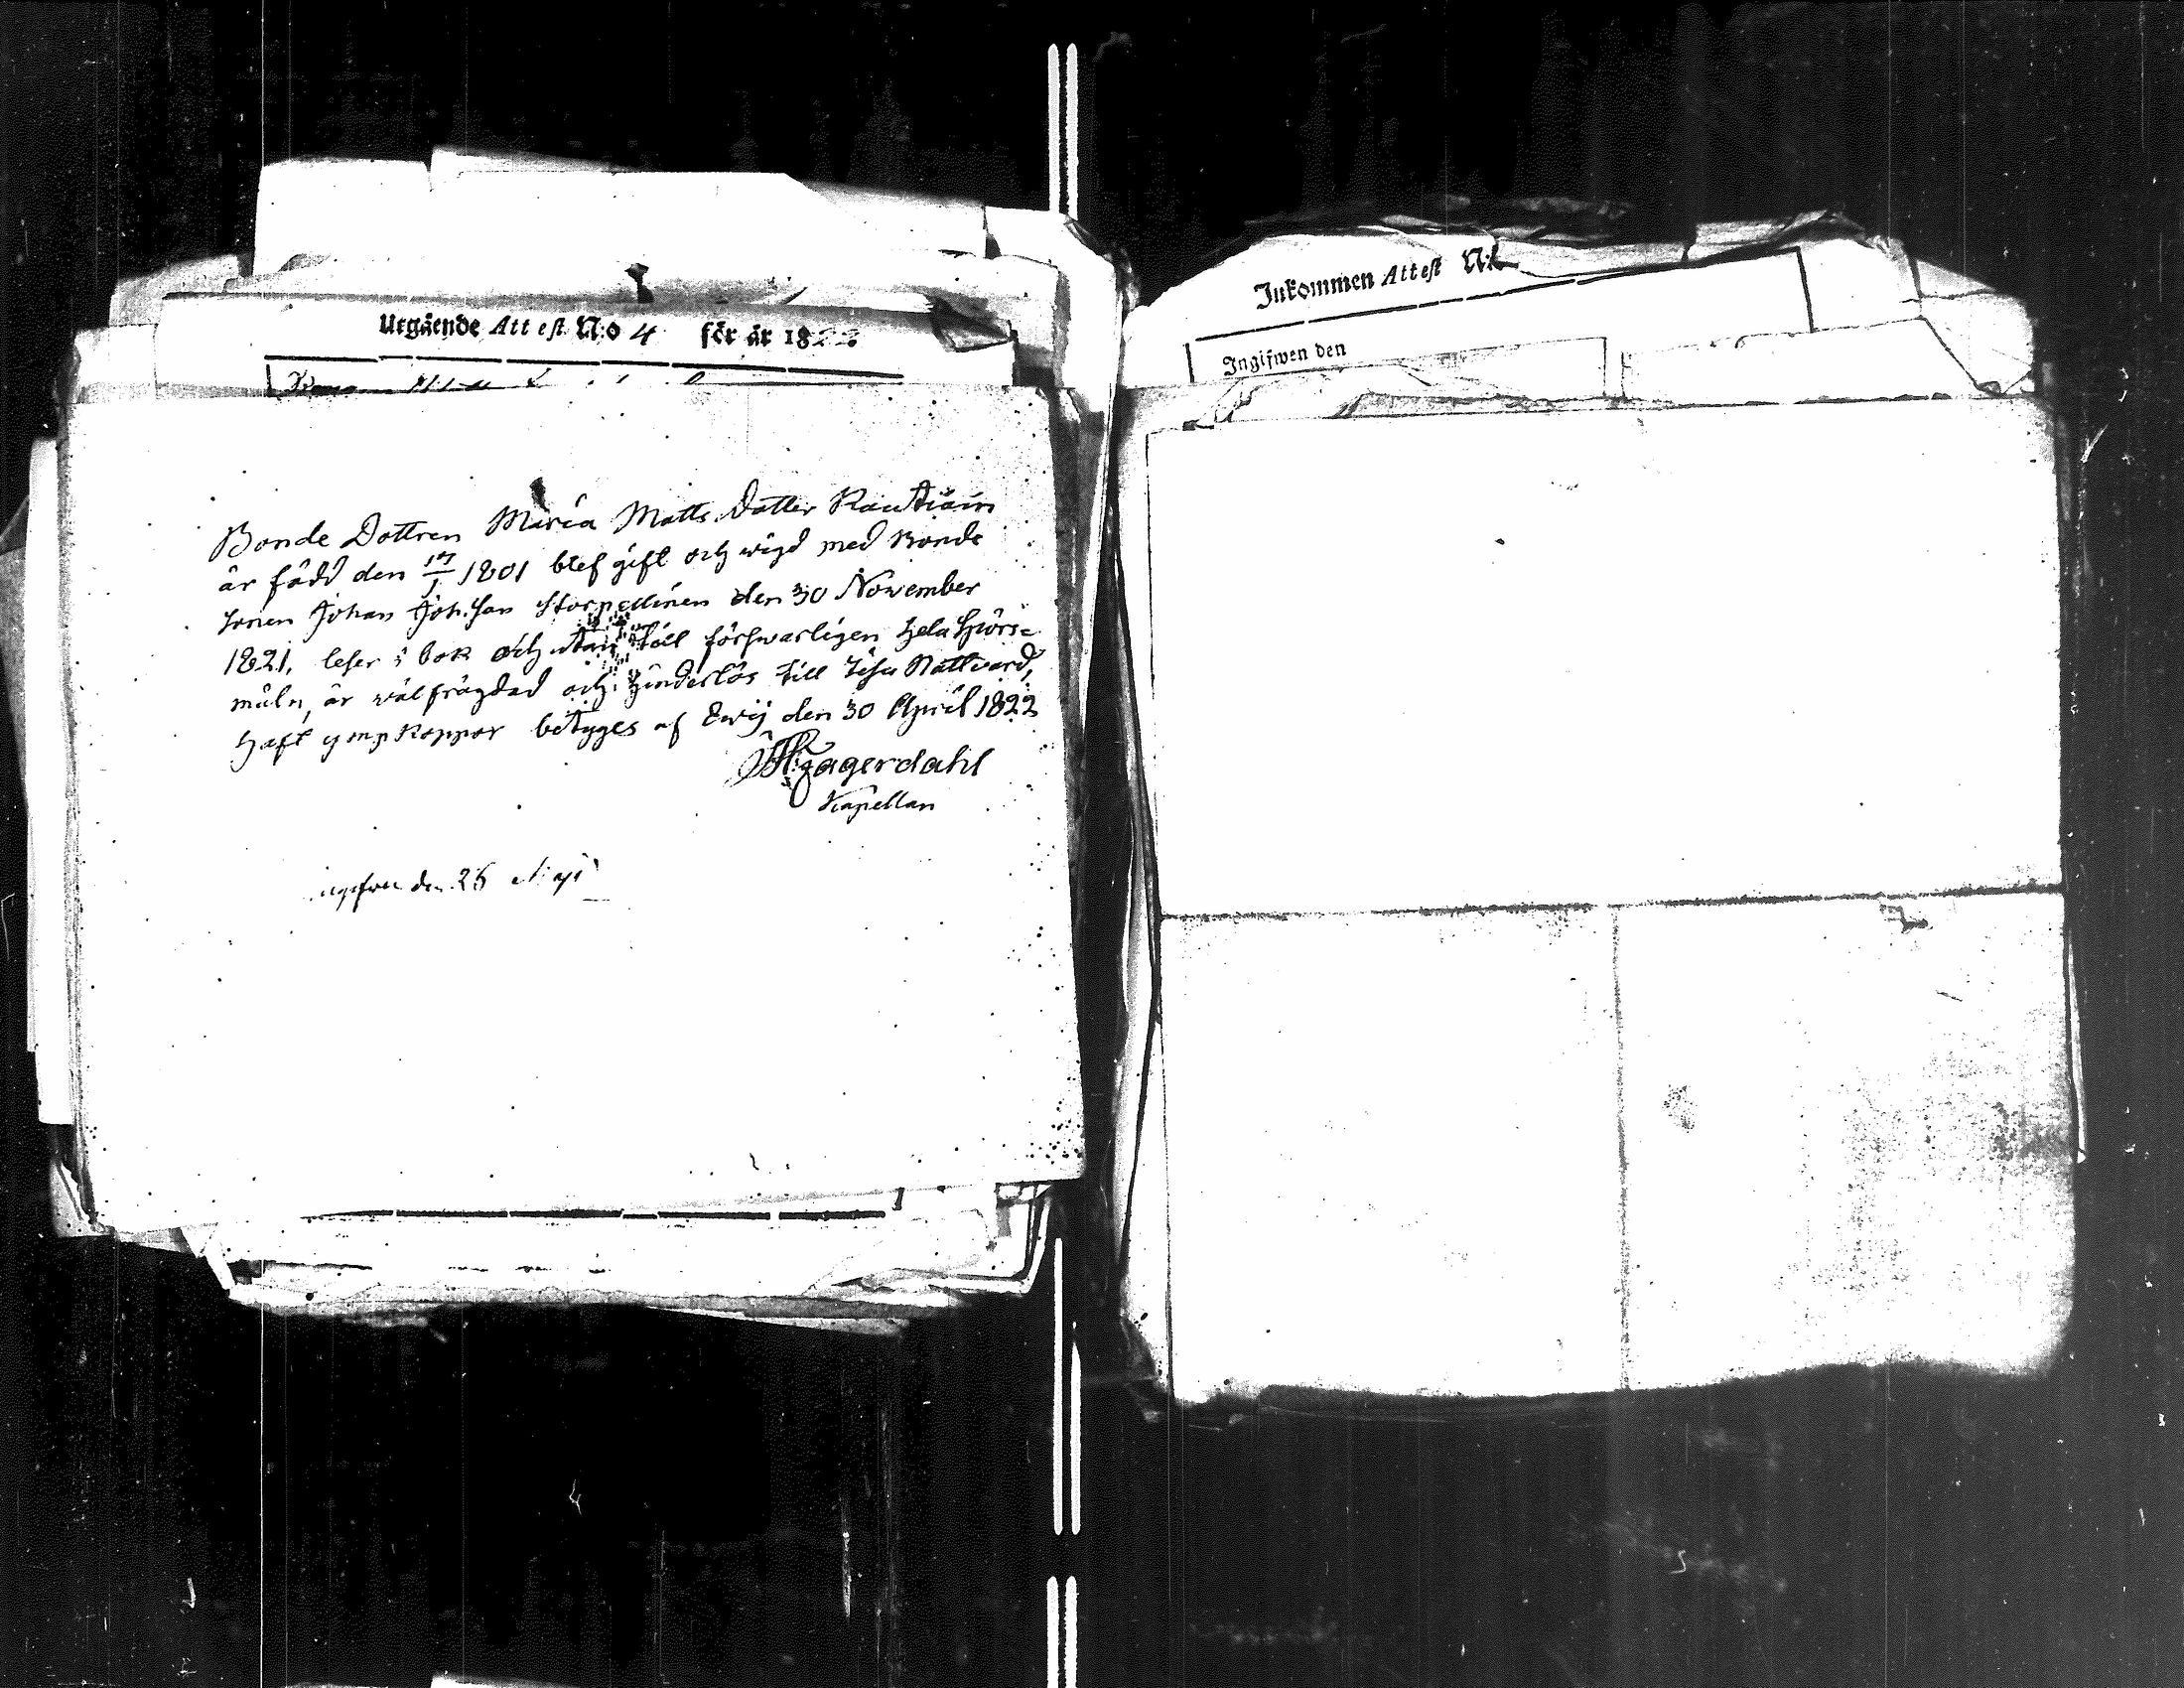 Utgående Attest N:o 4 för år 1822
Bonde Dottren Maria Matts Dotter Rautiain
är född den 17/1 1801 blef gift och wigd med Bonde
Sonen Johan Joh:son Storpellinen den 30 November
1821, leser i bok och utan till förswarligen hela Hørs=
måln, är wälfrägdad och hinderlös till Jesu Nattvard,
haft ymp koppor betyges af Ewij den 30 April 1822
Fagerdahl
Kapellan
den 26 Maji
Inkommen Attest N:
Ingifwen den